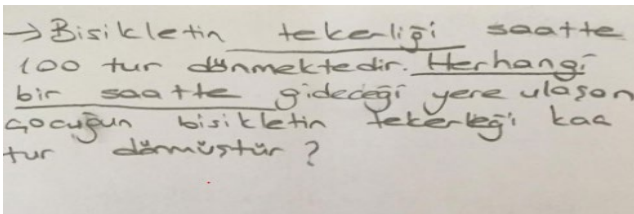 → Bisikletin tekerliği saatte
100 tur dönmektedir. Herhangi
bir saatte gideceği yere ulaşan
çocuğun bisikletin tekerleği kaç
tur dönmüştür?